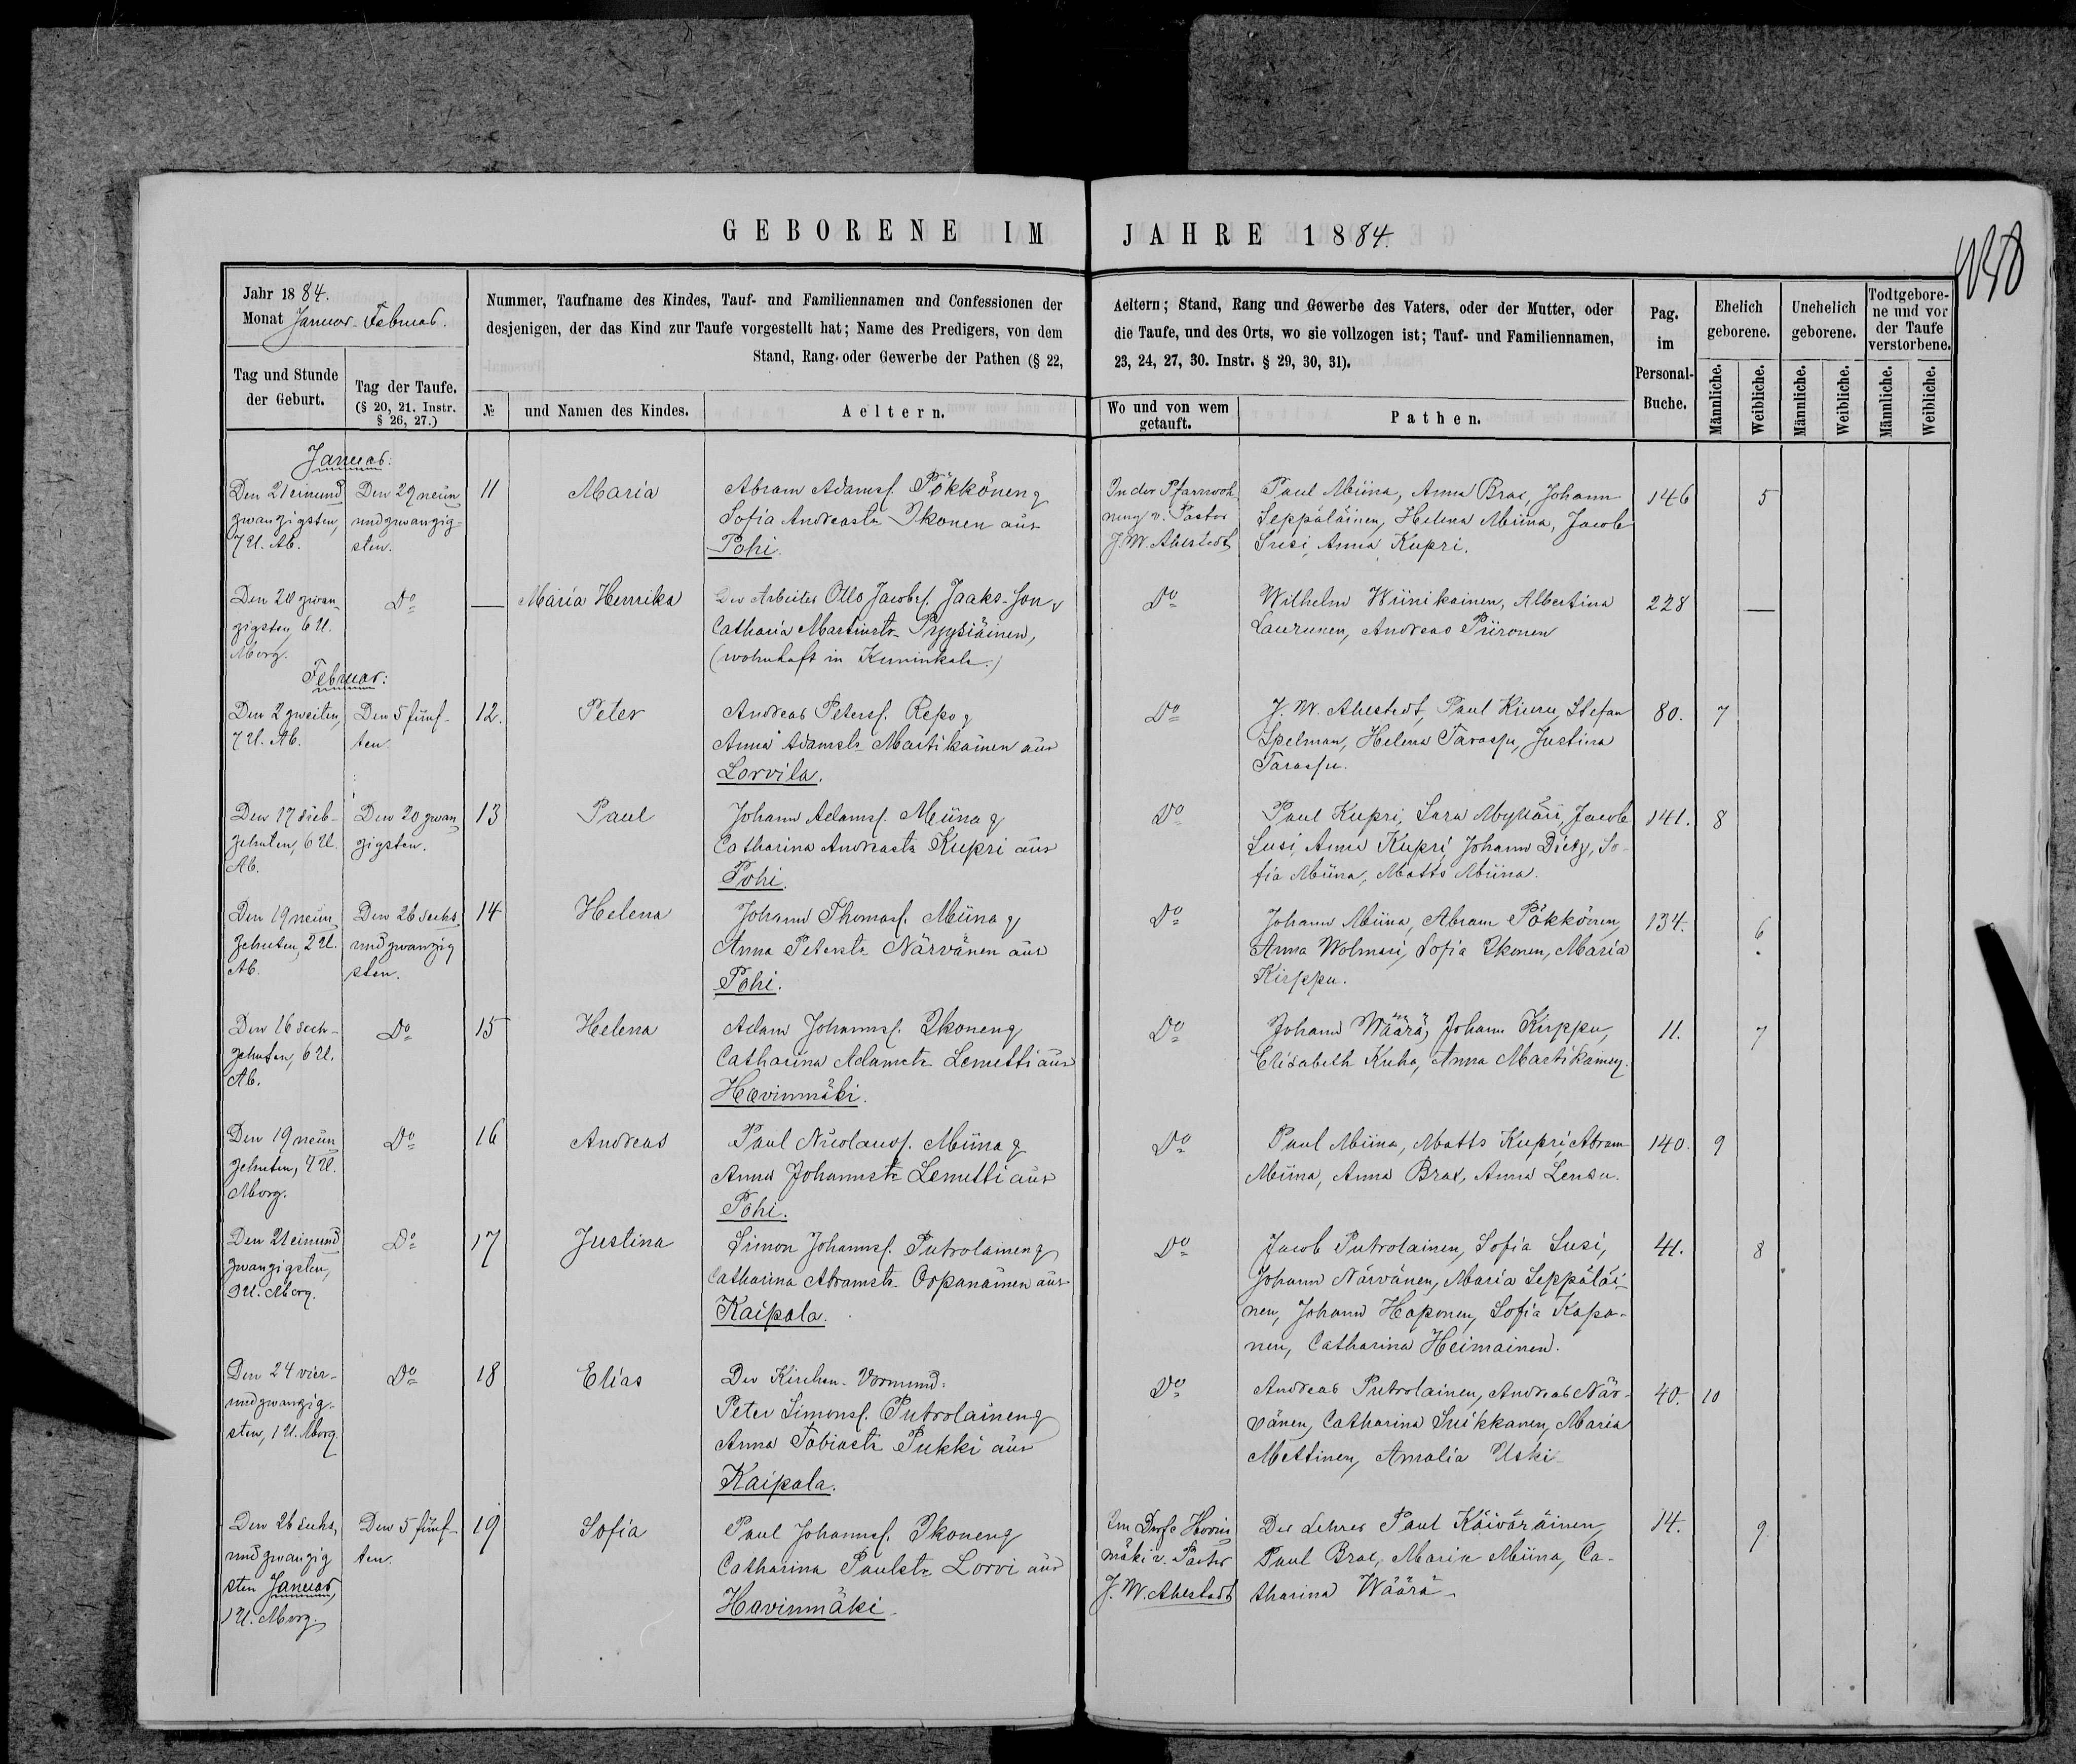 GEBORENE IM JAHRE 1884.
Jahr 1884.
Monat Januar-Februar.
Nummer, Taufname des Kindes, Tauf- und Familiennamen und Confessionen der Aeltern; Stand, Rang und Gewerbe des Vaters, oder der Mutter, oder
desjenigen, der das Kind zur Taufe vorgestellt hat; Name des Predigers, von dem die Taufe, und des Orts, wo sie vollzogen ist; Tauf- und Familiennamen,
Stand, Rang oder Gewerbe der Pathen (§ 22, 23, 24, 27, 30. Instr. § 29, 30, 31).
Tag und Stunde
der Geburt.
Tag der Taufe.
(§ 20, 21. Instr.
§ 26, 27.)
№
und Namen des Kindes.
Aeltern.
Wo und von wem
getauft.
Pathen.
Pag.
im
Personal-
Buche.
Ehelich
geborene.
Unehelich
geborene.
Todtgebore-
ne und vor
der Taufe
verstorbene.
Männliche.
Weibliche.
Männliche.
Weibliche.
Männliche.
Weibliche.
Januar:
Den 21 einund
zwanzigsten,
7 U. Ab.
Den 29 neun
undzwanzig-
sten.
11
Maria
Abram Adamsf. Pökkönen &
Sofia Andreastr Ikonen aus
Pohi.
In der Pfarrwoh
nung v. Pastor
J. W. Ahlstedt
Paul Miina, Anna Brax, Johann
Seppäläinen, Helena Miina, Jacob
Susi, Anna Kupri.
146
5
Den 20 zwan-
zigsten, 6 U.
Morg.
Do
—
Maria Henrika
Der Arbeiter Otto Jacobsf. Jaaks-Son &
Catharia Martinstr Pyysiäinen,
(wohnhaft in Kuninkala.)
Do
Wilhelm Wiinikainen, Albertina
Laurunen, Andreas Piironen
228
—
Februar:
Den 2 zweiten,
7 U. Ab.
Den 5 fünf-
ten.
12.
Peter
Andreas Petersf. Repo &
Anna Adamstr Martikainen aus
Lorvila.
Do
J. W. Ahlstedt, Paul Kiuru, Stefan
Spelman, Helena Tarassu, Justina
Tarassu.
80.
7
Den 17 sieb-
zehnten, 6 U.
Ab.
Den 20 zwan
zigsten.
13
Paul
Johann Adamsf. Miina &
Catharina Andreastr Kupri aus
Pohi.
Do
Paul Kupri, Sara Mylläri, Jacob
Susi, Anna Kupri Johann Dietz, So-
fia Miina, Matts Miina.
141.
8
Den 19 neun
zehnten, 2 U.
Ab.
Den 26 sechs
undzwanzig
sten.
14
Helena
Johann Thomasf. Miina &
Anna Peterstr Närvänen aus
Pohi.
Do
Johann Miina, Abram Pökkönen,
Anna Wolmari, Sofia Ikonen, Maria
Kirppu.
134.
6
Den 16 sech-
zehnten, 6 U.
Ab.
Do
15
Helena
Adam Johannsf. Ikonen &
Catharina Adamstr Lemetti aus
Havinmäki.
Do
Johann Wäärä, Johann Kirppu,
Elisabeth Kuha, Anna Martikainen.
11.
7
Den 19 neun
zehnten, 7 U.
Morg.
Do
16
Andreas
Paul Nicolausf. Miina &
Anna Johannstr Lemetti aus
Pohi.
Do
Paul Miina, Matts Kupri, Abram
Miina, Anna Brax, Anna Lensu.
140.
9
Den 21 einund
zwanzigsten,
9 U. Morg.
Do
17
Justina
Simon Johannsf. Putrolainen &
Catharina Abramstr. Orpanainen aus
Kaipala.
Do
Jacob Putrolainen, Sofia Susi,
Johann Närvänen, Maria Seppäläi-
nen, Johann Haponen, Sofia Kapa-
nen, Catharina Heimainen.
41.
8
Den 24 vier-
undzwanzig-
sten, 1 U. Morg.
Do
18
Elias
Der Kirchen-Vormund:
Peter Simonsf. Putrolainen &
Anna Tobiastr Pukki aus
Kaipala.
Do
Andreas Putrolainen, Andreas När-
vänen, Catharina Suikkanen, Maria
Mettinen, Amalia Uski
40.
10
Den 26 sechs
undzwanzig
sten Januar,
1 U. Morg.
Den 5 fünf-
ten.
19
Sofia
Paul Johannsf. Ikonen &
Catharina Paulstr Lorvi aus
Havinmäki.
Im Dorfe Havin
mäki v. Pastor
J. W. Ahlstedt
Der Lehrer Paul Käiväräinen,
Paul Brax, Maria Miina, Ca-
tharina Wäärä
14.
9